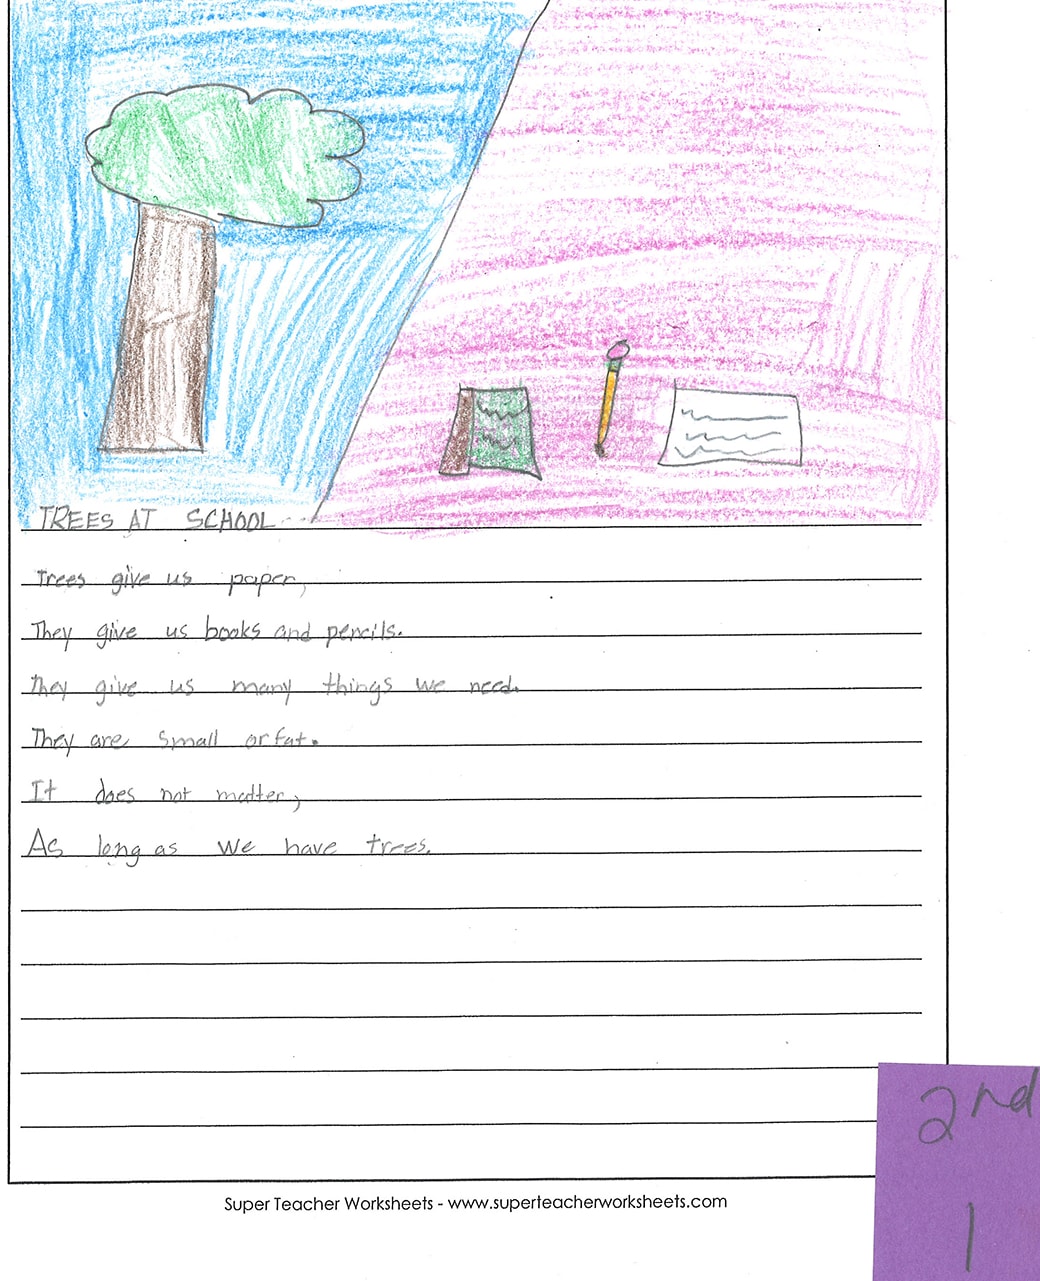 TREES AT SCHOOL
Trees give us paper,
They give us books and pencils.
They give us many things we need.
They are small or fat.
It does not matter,
As long as we have trees.
2nd
1
Super Teacher Worksheets - www.superteacherworksheets.com